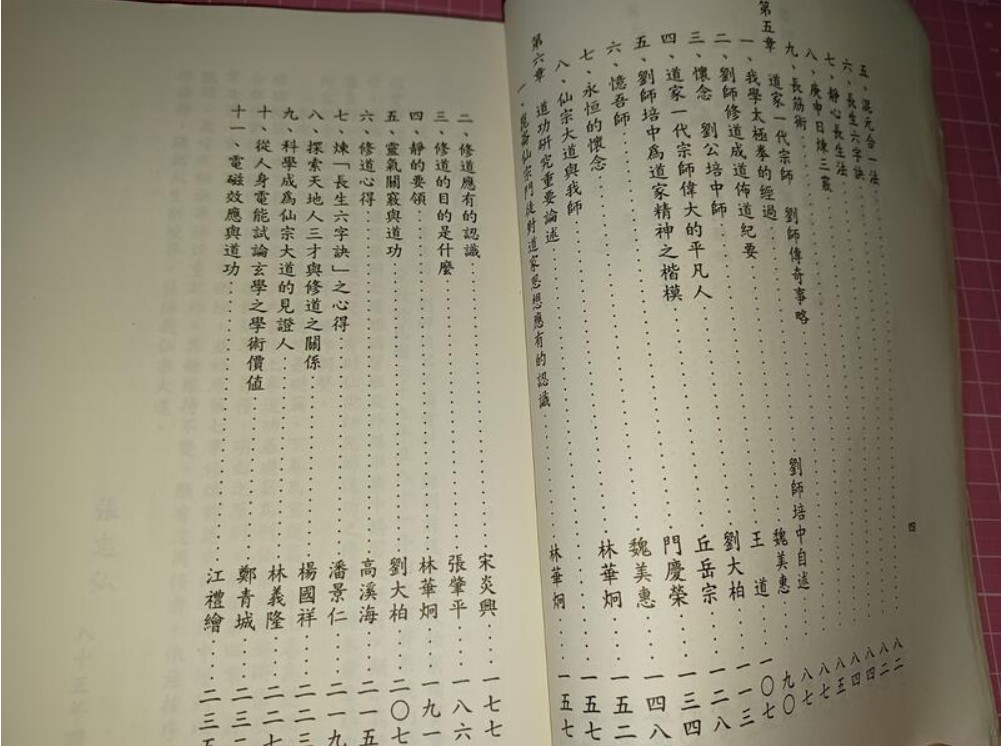 四
五、混元合一法……八二
六、長生六字訣……八二
七、靜心長生法……八四
八、庚申日煉三……八四
九、長筋術……八五
第五章 道家一代宗師 劉師傳奇事略……八七
一、我學太極拳的經過……劉師培中自述……八七
二、劉師修道成道佈道紀要……魏美惠……九〇
三、懷念 劉公培中師……王 道……一〇七
四、道家一代宗師偉大的平凡人……劉大柏……一一三
五、劉師培中為道家精神之楷模……丘岳宗……一二八
六、憶吾師……門慶榮……一三四
七、永恒的懷念……魏美惠……一四八
八、仙宗大道與我師……林華炯……一五二
第六章 道功研究重要論述……一五七
一、崑崙仙宗門徒對道家思想應有的認識 林華炯……一五七
二、修道應有的認識……宋炎興……一七七
三、修道的目的是什麼……張肇平……一八六
四、靜的要領……林華炯……一九一
五、靈氣關竅與道功……劉大柏……二〇七
六、修道心得……高溪海……二一五
七、煉「長生六字訣」之心得……潘景仁……二一九
八、探索天地人三才與修道之關係……楊國祥……二二三
九、科學成為仙宗大道的見證人……林義隆……二二七
十、從人身電能試論玄學之學術價值……鄭青城……二三二
十一、電磁效應與道功……江禮繪……二三五